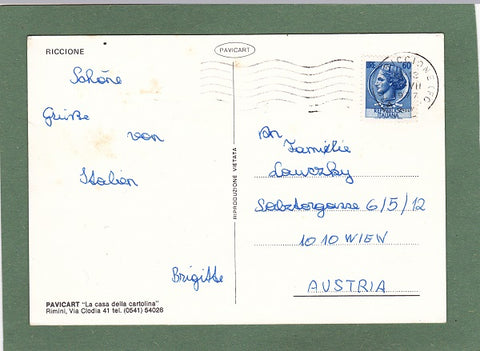 RICCIONE
PAVICART
Schöne
Grüße
von
Italien
Brigitte
PAVICART "La casa della cartolina"
Rimini, Via Clodia 41 tel. (0541) 54026
RIPRODUZIONE VIETATA
60
An
Familie
Lauczky
Salztorgasse 6/5/12
1010 WIEN
AUSTRIA